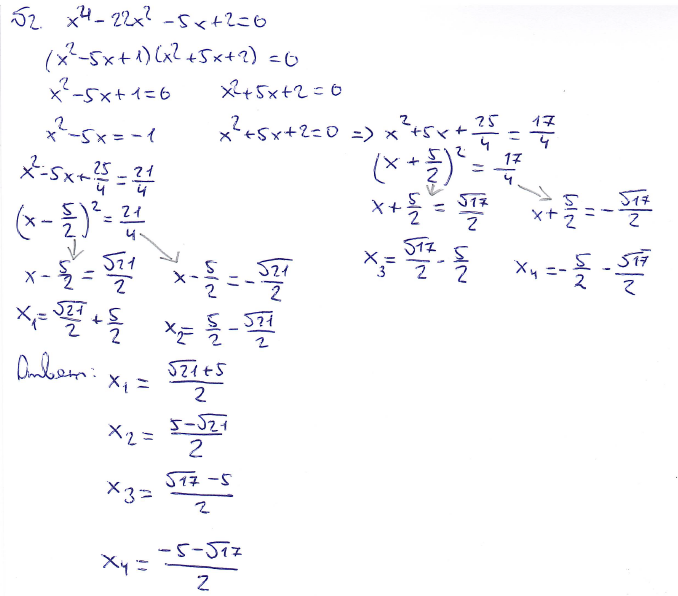 √2. x⁴ - 22x² - 5x + 2 = 0
(x² - 5x + 1)(x² + 5x + 2) = 0
x² - 5x + 1 = 0 x² + 5x + 2 = 0
x² - 5x = -1 x² + 5x + 2 = 0 => x² + 5x + 25/4 = 17/4
x² - 5x + 25/4 = 21/4 (x + 5/2)² = 17/4
(x - 5/2)² = 21/4 x + 5/2 = √17/2 x + 5/2 = -√17/2
x - 5/2 = √21/2 x - 5/2 = -√21/2 x₃ = √17/2 - 5/2 x₄ = -5/2 - √17/2
x₁ = √21/2 + 5/2 x₂ = 5/2 - √21/2
Ответ: x₁ = (√21 + 5)/2
x₂ = (5 - √21)/2
x₃ = (√17 - 5)/2
x₄ = (-5 - √17)/2